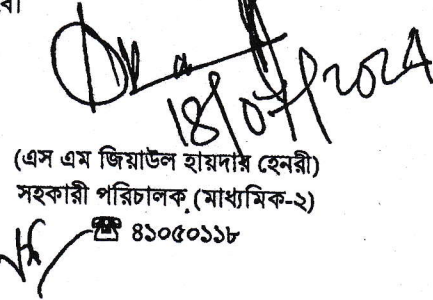 18/07/2024
(এস এম জিয়াউল হায়দার হেনরী)
সহকারী পরিচালক (মাধ্যমিক-২)
☎ ৪১০৫০১১৮